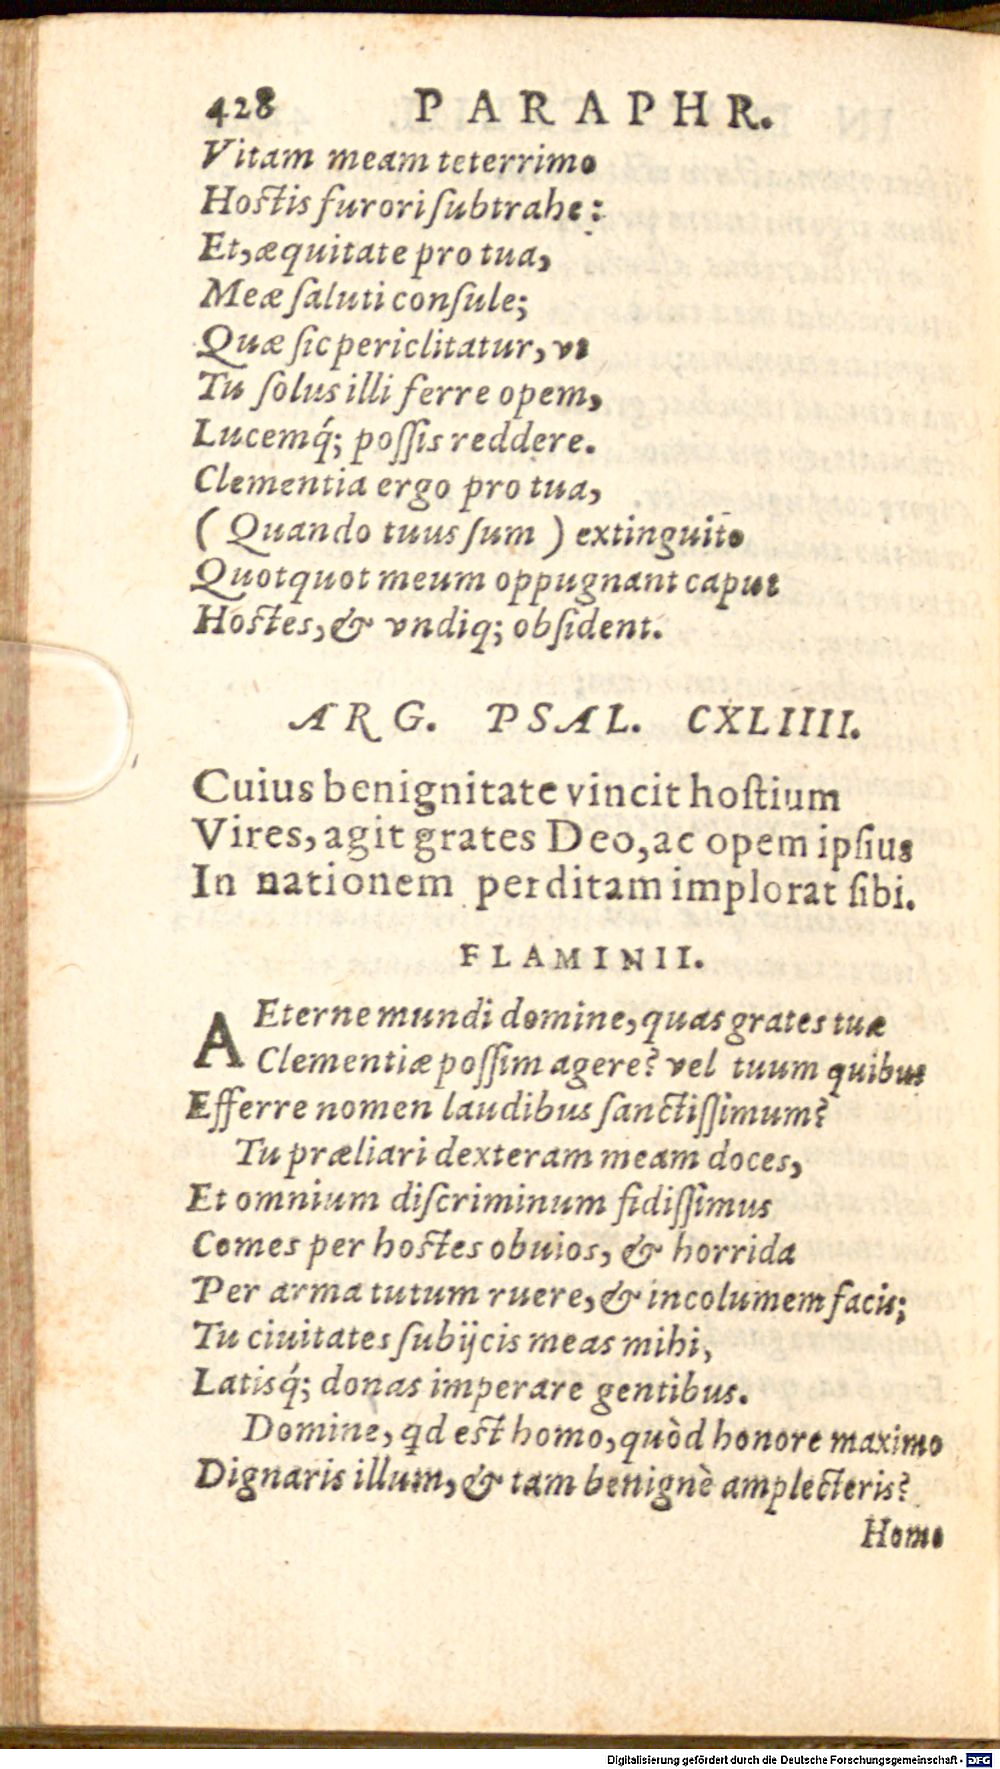 428 PARAPHR.
Vitam meam teterrimo
Hostis furori ſubtrahe:
Et, æquitate pro tua,
Meæ ſaluti conſule;
Quæ ſic periclitatur, vt
Tu ſolus illi ferre opem,
Lucemq́; poſſis reddere.
Clementia ergo pro tua,
( Quando tuus ſum ) extinguito
Quotquot meum oppugnant caput
Hostes, & vndiq; obſident.
ARG. PSAL. CXLIIII.
Cuius benignitate vincit hoſtium
Vires, agit grates Deo, ac opem ipſius
In nationem perditam implorat ſibi.
FLAMINII.
AEterne mundi domine, quas grates tuæ
Clementiæ poſſim agere? vel tuum quibus
Efferre nomen laudibus ſanctiſſimum?
Tu præliari dexteram meam doces,
Et omnium diſcriminum fidiſſimus
Comes per hostes obuios, & horrida
Per arma tutum ruere, & incolumem facis;
Tu ciuitates ſubijcis meas mihi,
Latisq́; donas imperare gentibus.
Domine, qd est homo, quòd honore maximo
Dignaris illum, & tam benignè amplecteris?
Homo
Digitalisierung gefördert durch die Deutsche Forschungsgemeinschaft - DFG